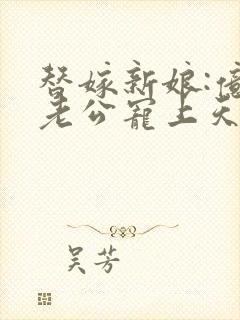 替嫁新娘:億
老公寵上天
吴芳